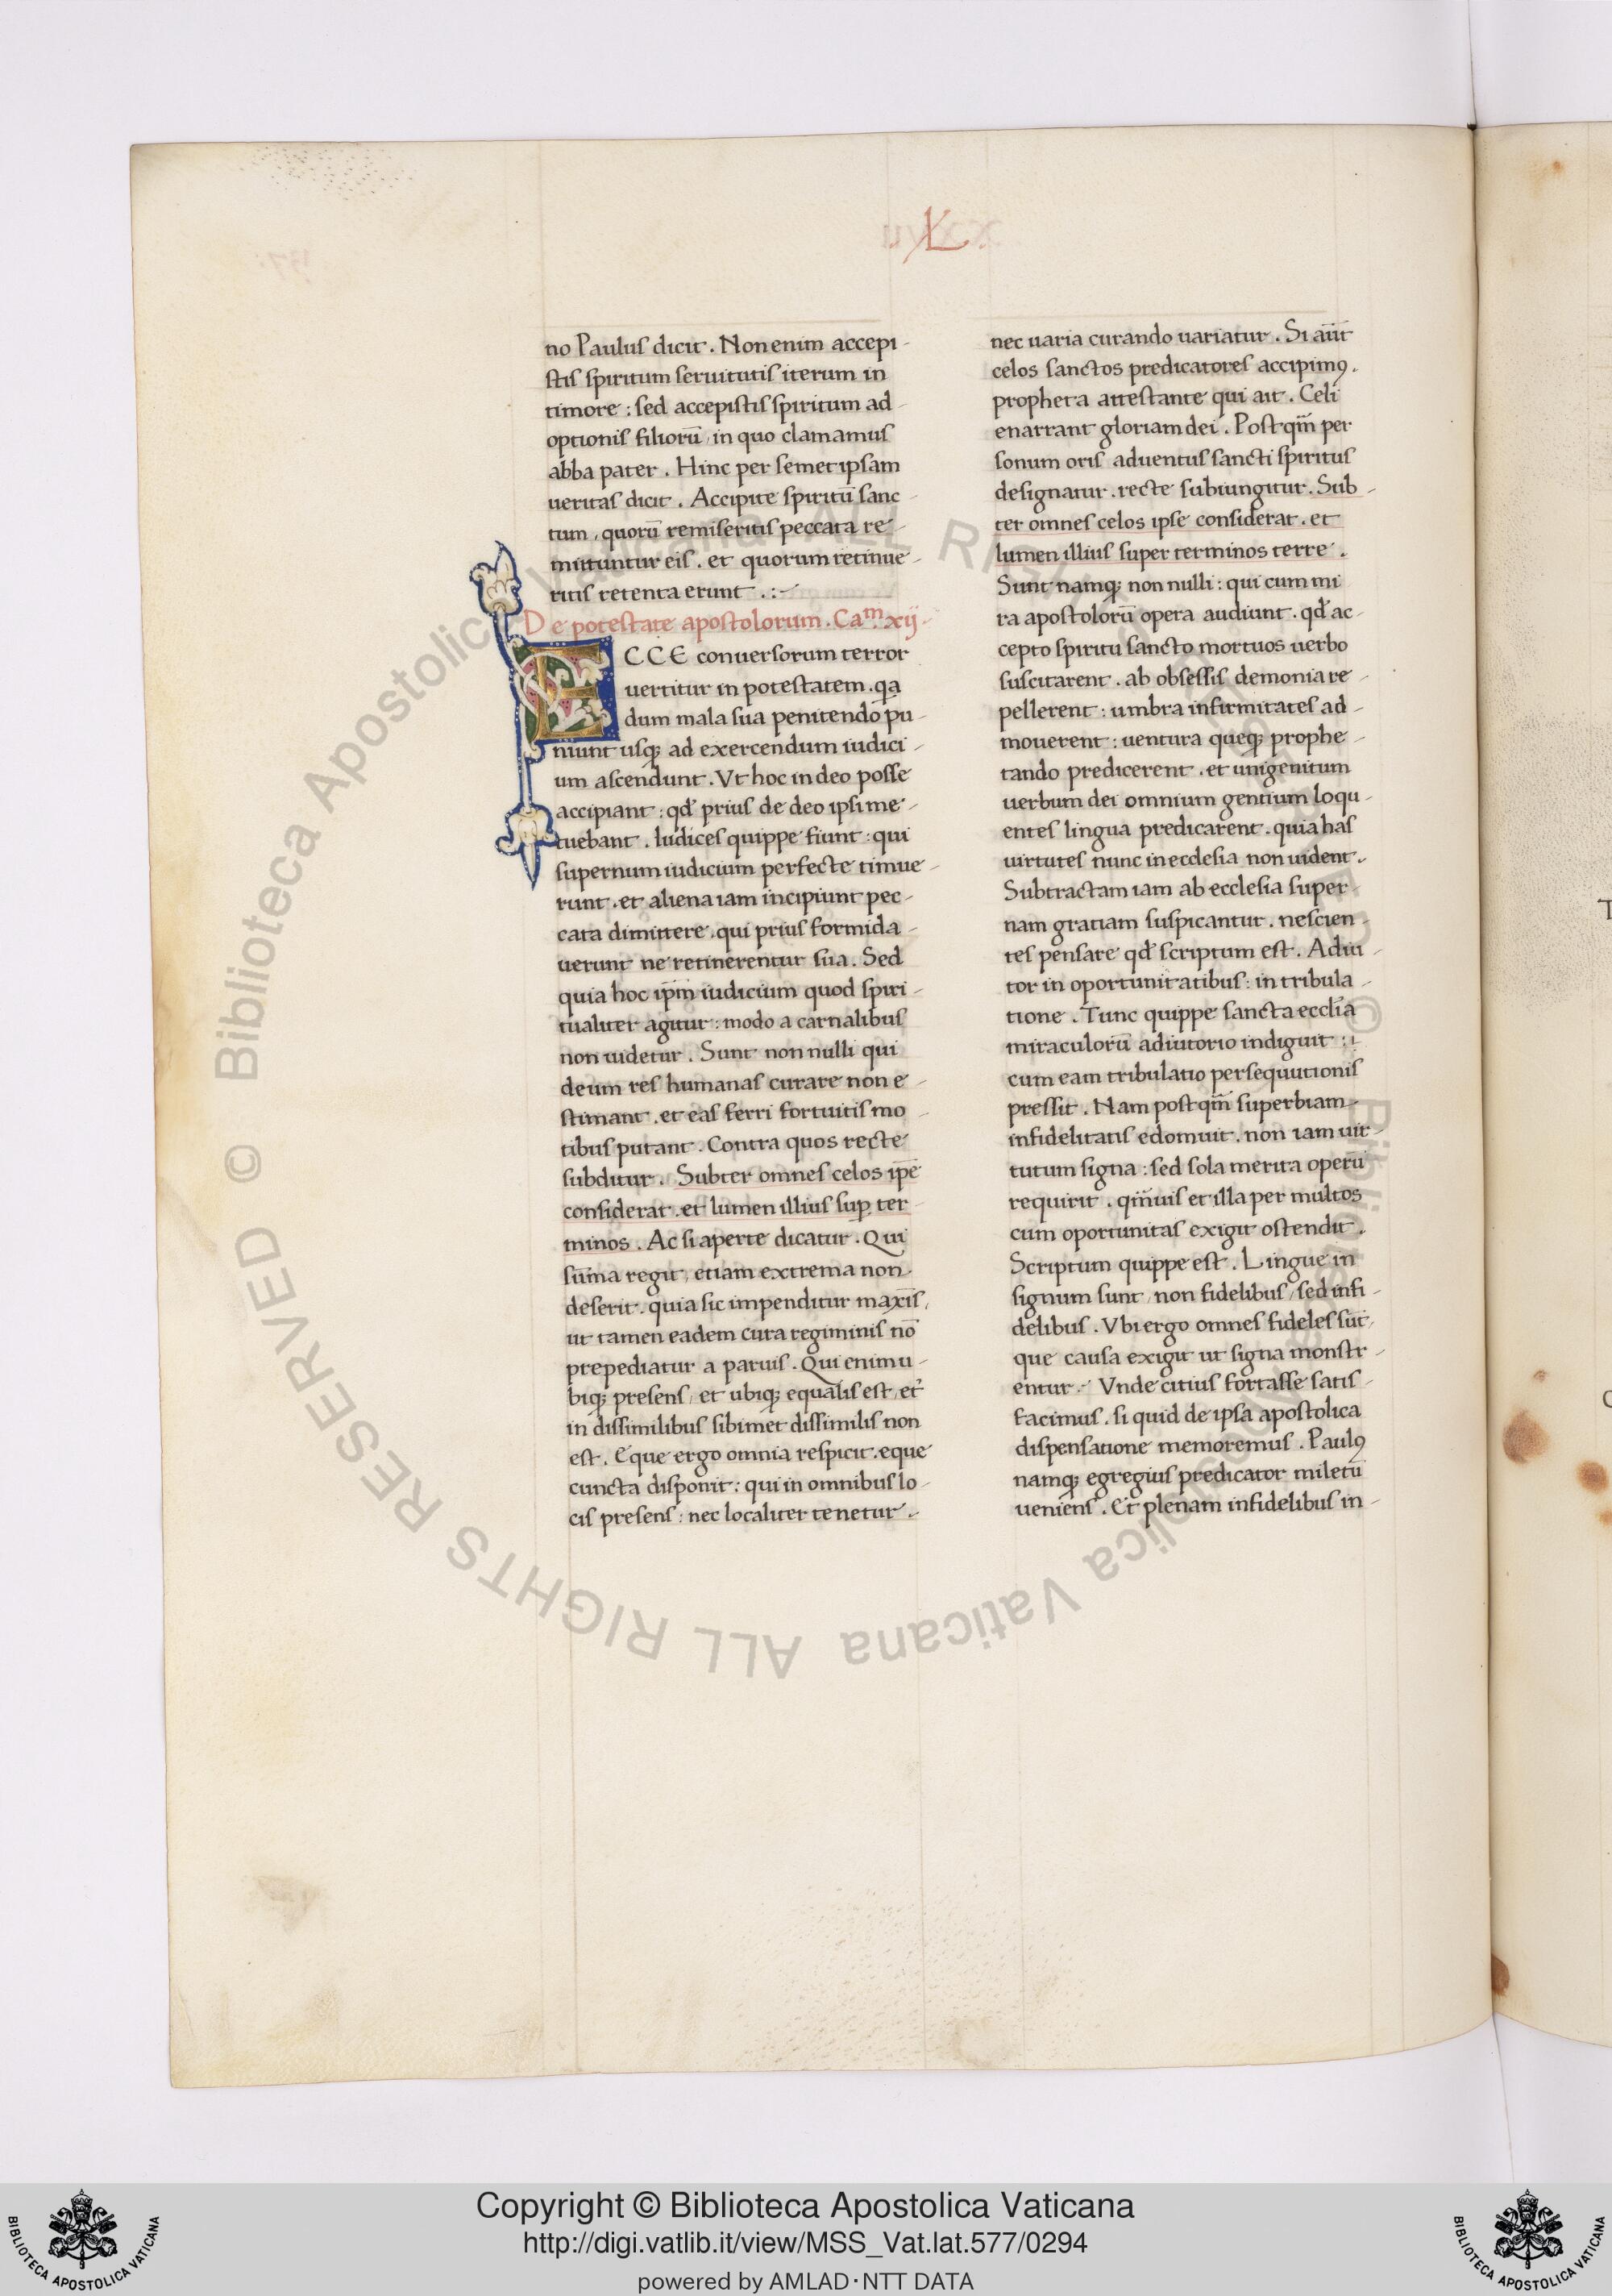 L
no Paulus dicit. Non enim accepi-
stis spiritum seruitutis iterum in
timore: sed accepistis spiritum ad-
optionis filioru̅, in quo clamamus
abba pater. Hinc per semet ipsam
ueritas dicit. Accipite spiritu̅ sanc-
tum, quoru̅ remiseritis peccata re-
mittuntur eis. et quorum retinue-
ritis retenta erunt.:-
De potestate apostolorum. Caᵐ. xij.
ECCE conuersorum terror
uertitur in potestatem. qa
dum mala sua penitendo pu-
niunt usq; ad exercendum iudici-
um ascendunt. Vt hoc in deo posse
accipiant: qd̕ prius de deo ipsi me-
tuebant. Iudices quippe fiunt: qui
supernum iudicium perfecte timue-
runt. et aliena iam incipiunt pec-
cata dimittere. qui prius formida-
uerunt ne retinerentur sua. Sed
quia hoc ip̅m iudicium quod spiri-
tualiter agitur: modo a carnalibus
non uidetur. Sunt non nulli qui
deum res humanas curare non e-
stimant. et eas ferri fortuitis mo-
tibus putant. Contra quos recte
subditur. Subter omnes celos ip̅e
considerat. et lumen illius sup̱ ter-
minos. Ac si aperte dicatur. Qui
su̅ma regit, etiam extrema non
deserit. quia sic impenditur maxi̅s,
ut tamen eadem cura regiminis no̅
prepediatur a paruis. Qui enim u-
biq; presens, et ubiq; equalis est, et
in dissimilibus sibimet dissimilis non
est. Eque ergo omnia respicit. eque
cuncta disponit: qui in omnibus lo-
cis presens: nec localiter tenetur.
nec uaria curando uariatur. Si au̅t
celos sanctos predicatores accipimꝯ.
propheta attestante qui ait. Celi
enarrant gloriam dei. Postqm̅ per
sonum oris aduentus sancti spiritus
designatur. recte subiungitur. Sub-
ter omnes celos ipse considerat. et
lumen illius super terminos terre.
Sunt namq; non nulli: qui cum mi
ra apostoloru̅ opera audiunt. qd̕ ac-
cepto spiritu sancto mortuos uerbo
suscitarent. ab obsessis demonia re-
pellerent: umbra infirmitates ad-
mouerent: uentura queq; prophe-
tando predicerent. et unigenitum
uerbum dei omnium gentium loqu-
entes lingua predicarent. quia has
uirtutes nunc in ecclesia non uident.
Subtractam iam ab ecclesia super-
nam gratiam suspicantur. nescien-
tes pensare qd̕ scriptum est. Adiu-
tor in oportunitatibus: in tribula-
tione. Tunc quippe sancta eccli̅a
miraculoru̅ adiutorio indiguit:
cum eam tribulatio persequutionis
pressit. Nam postqm̅ superbiam
infidelitatis edomuit. non iam uir-
tutum signa: sed sola merita operu̅
requirit. qm̅uis et illa per multos
cum oportunitas exigit ostendit.
Scriptum quippe est. Lingue in
signum sunt, non fidelibus, sed infi-
delibus. Vbi ergo omnes fideles su̅t,
que causa exigit ut signa monstr-
entur. Vnde citius fortasse satis-
facimus. si quid de ipsa apostolica
dispensatione memoremus. Paulꝯ
namq; egregius predicator miletu̅
ueniens. Et plenam infidelibus in-
© Biblioteca Apostolica Vaticana ALL RIGHTS RESERVED
© Biblioteca Apostolica Vaticana ALL RIGHTS RESERVED
Copyright © Biblioteca Apostolica Vaticana
http://digi.vatlib.it/view/MSS_Vat.lat.577/0294
powered by AMLAD·NTT DATA
BIBLIOTECA APOSTOLICA VATICANA
BIBLIOTECA APOSTOLICA VATICANA